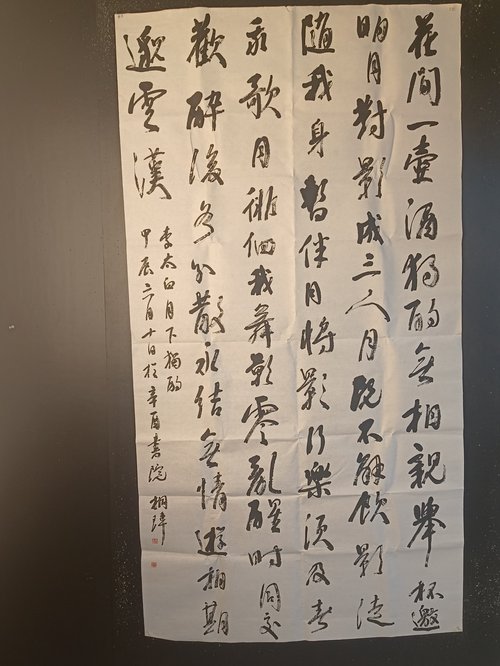 花間一壺酒獨酌無相親舉杯邀
明月對影成三人月既不解飲影徒
隨我身暫伴月將影行樂須及春
我歌月徘徊我舞影零亂醒時同交
歡醉後各分散永結無情遊相期
邈雲漢
李太白月下獨酌
甲辰二月十日於辛酉書院